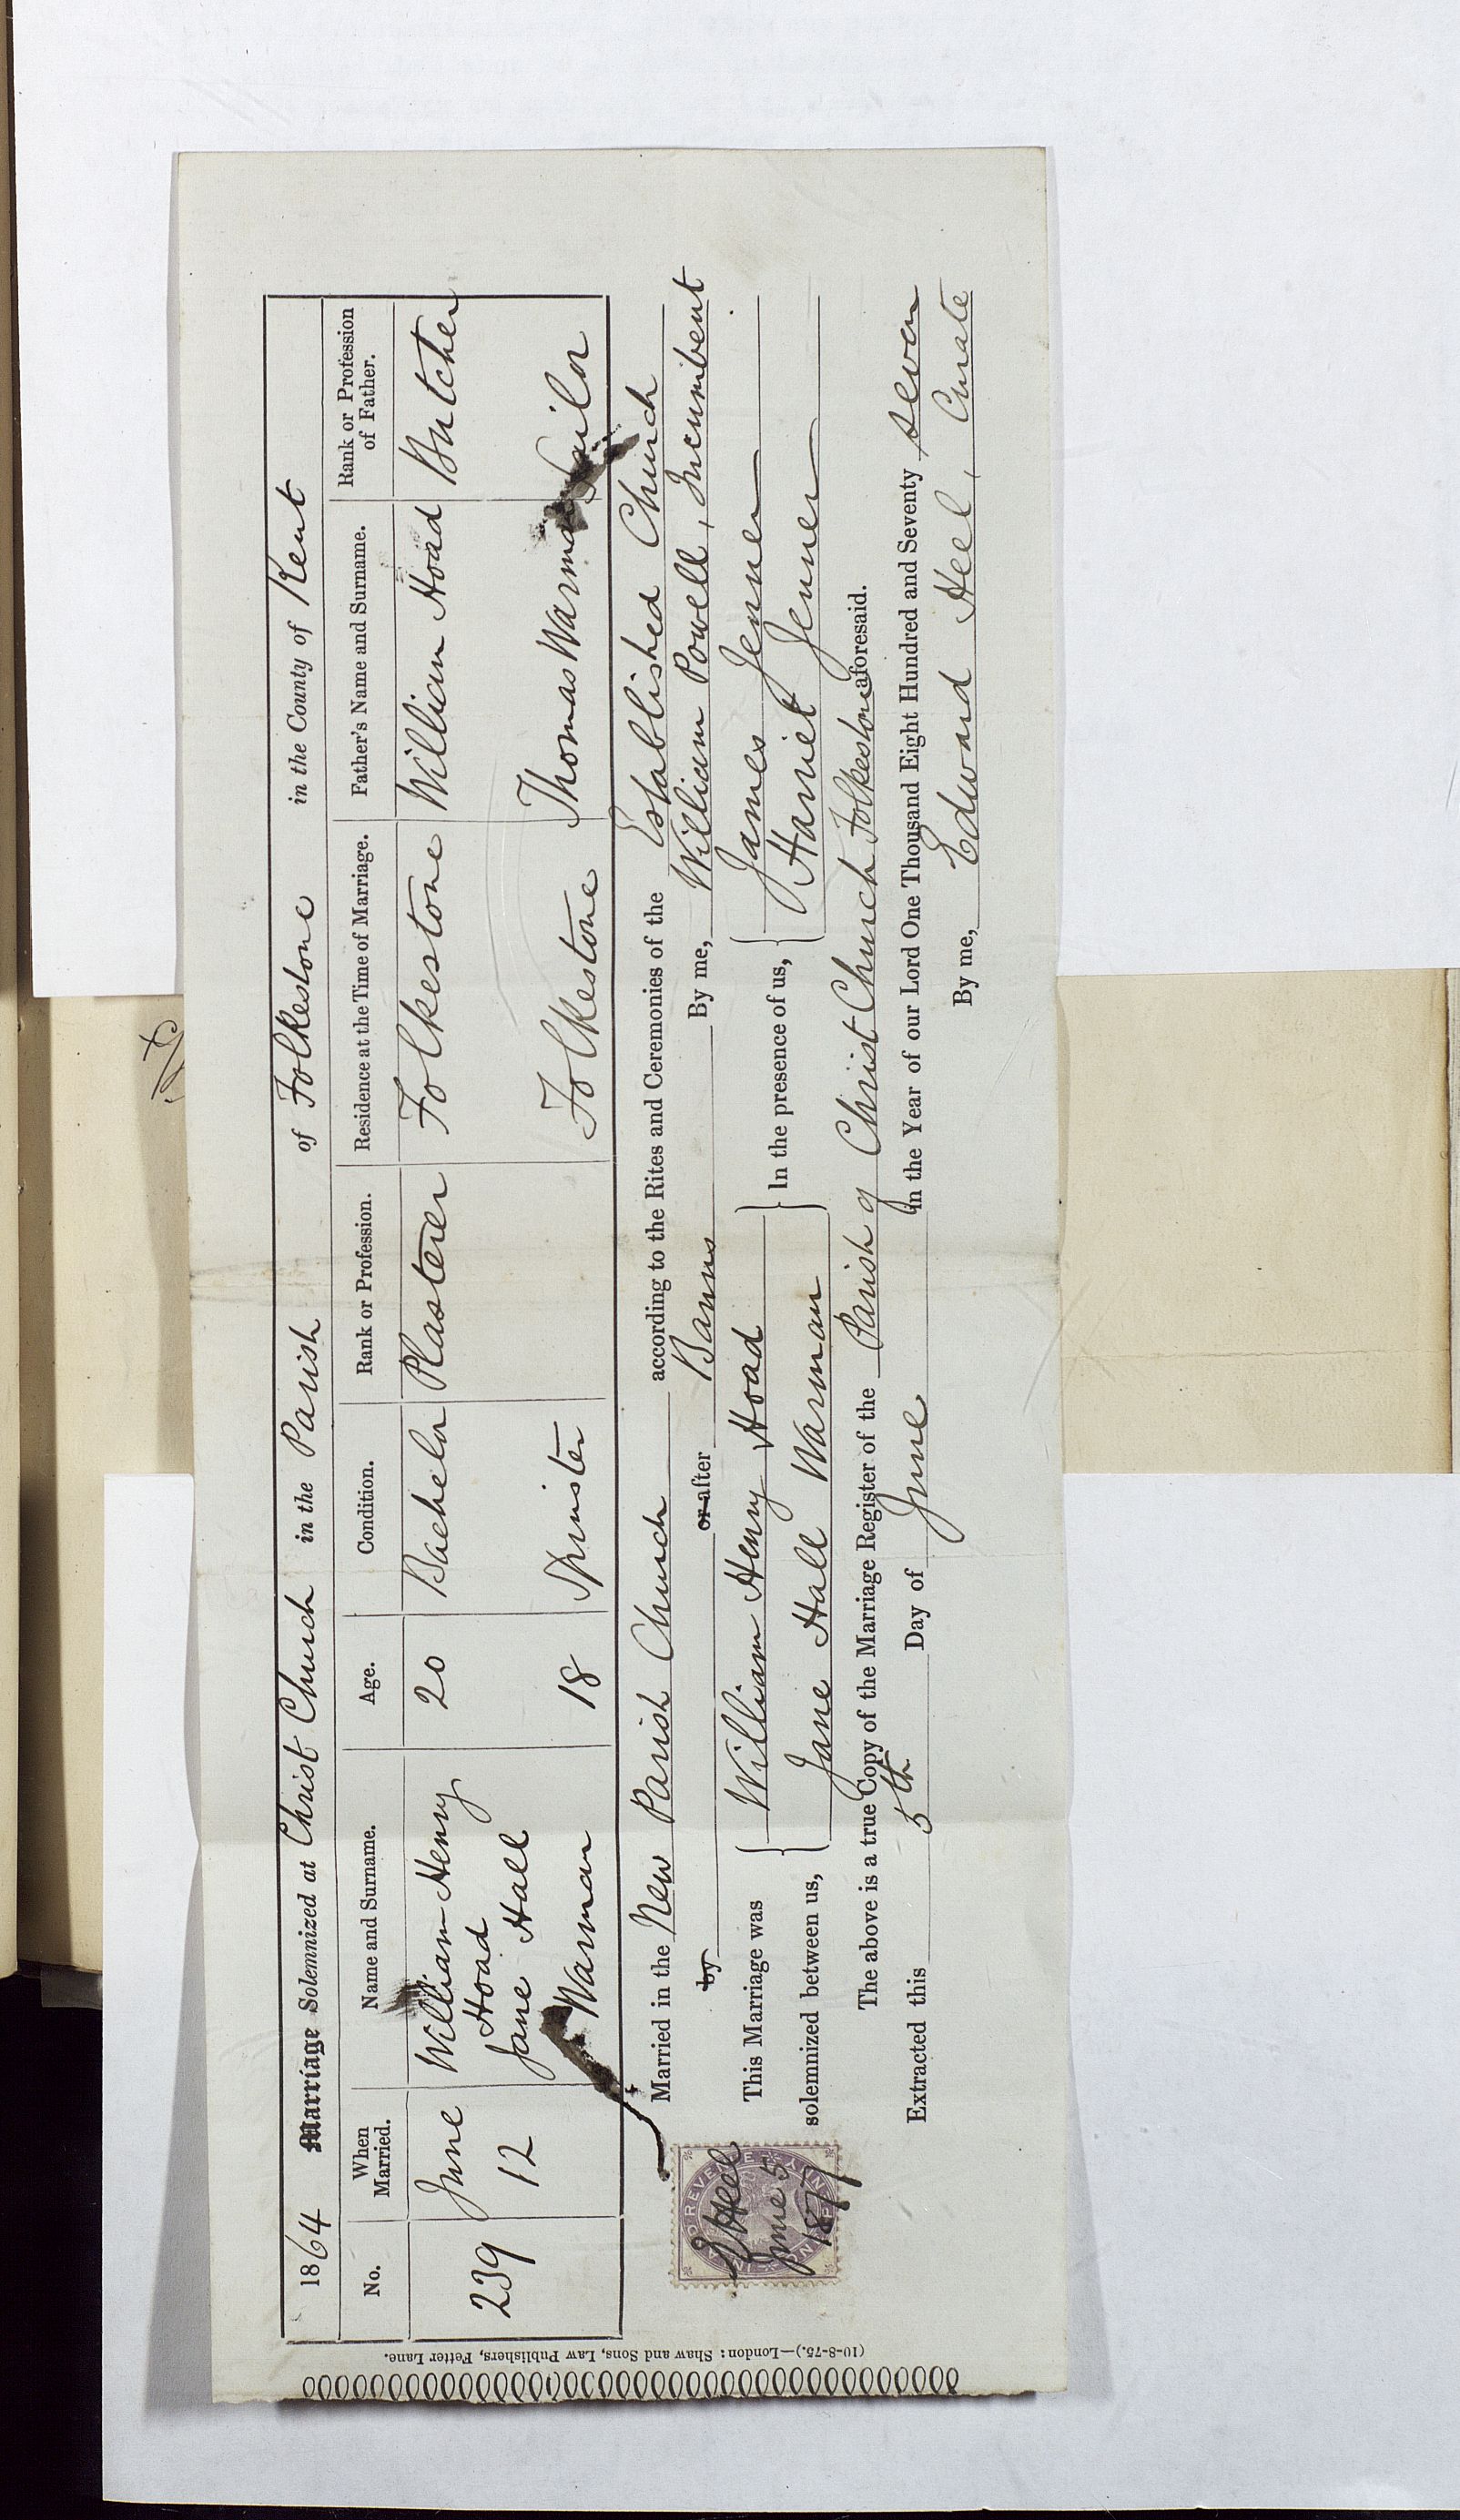 1864 Marriage Solemnized at Christ Church in the Parish of Folkestone in the County of Kent
No. When Married. Name and Surname. Age. Condition. Rank or Profession. Residence at the Time of Marriage. Father's Name and Surname. Rank or Profession of Father.
239 June 12 William Henry Hoad 20 Bachelor Plasterer Folkestone William Hoad Butcher
Jane Hall Warman 18 Spinster Folkestone Thomas Warman Sailor
Married in the New Parish Church according to the Rites and Ceremonies of the Established Church
by or after Banns By me, William Powell, Incumbent
This Marriage was solemnized between us, William Henry Hoad In the presence of us, James Jenner
Jane Hall Warman Harriet Jenner
The above is a true Copy of the Marriage Register of the Parish of Christ Church Folkestone aforesaid.
Extracted this 5th Day of June in the Year of our Lord One Thousand Eight Hundred and Seventy seven
By me, Edward Heel, Curate
E Heel
June 5
1877
INLAND REVENUE
ONE PENNY
(10-8-75.)—London: Shaw and Sons, Law Publishers, Fetter Lane.